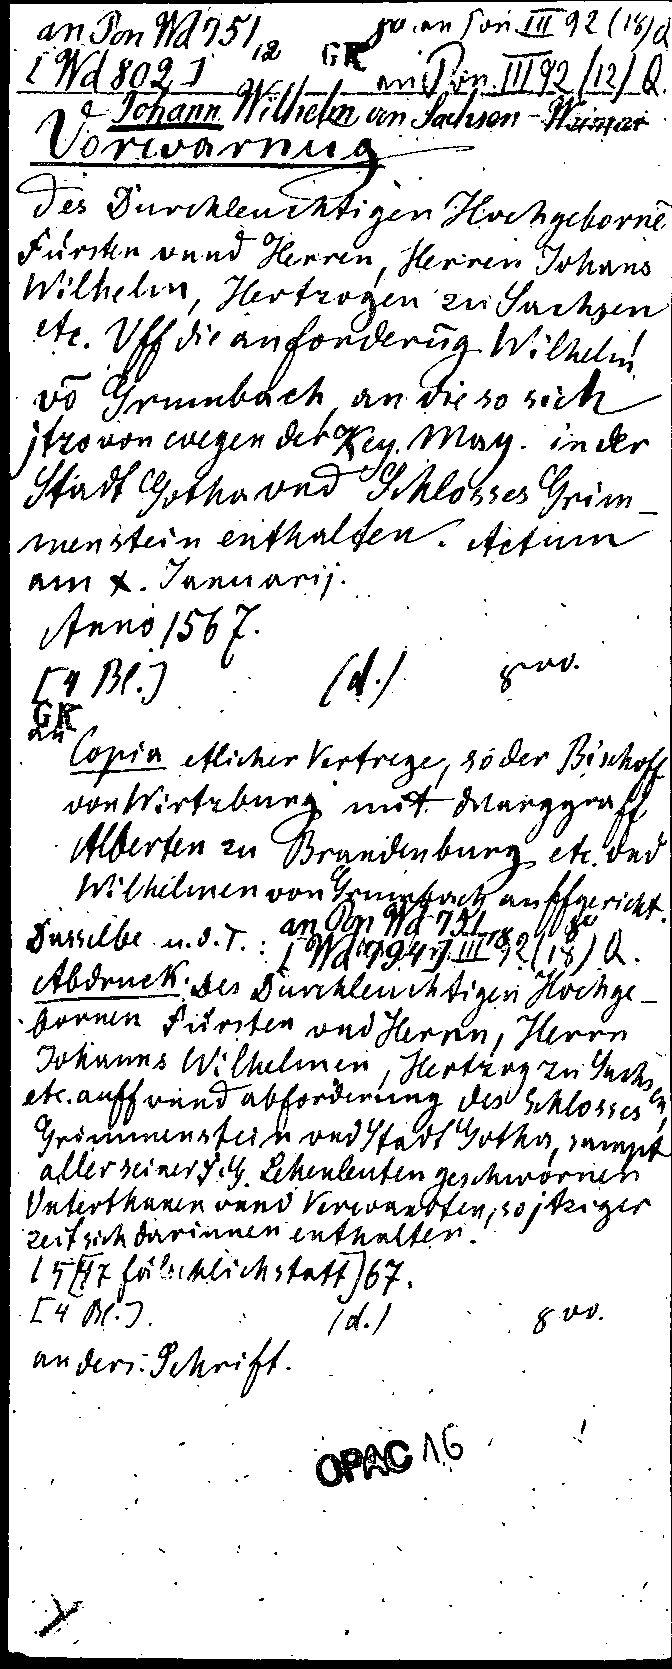 an Pon Wd 751, 12 GK 80. an Pon III 92 (18) Q
[Wd 802] an Pon. III 92 (12) Q.
Johann Wilhelm von Sachsen-Weimar
Vorwarnug
Des Durchleuchtigen Hochgebornē
Fürsten vnnd Herren, Herren Johans
Wilhelm, Hertzogen zu Sachsen
etc. Vff die anforderūg Wilhelm
vō Grumbach, an die so sich
jtzo von wegen der Key. May. in der
Stadt Gotha vnd Schlosses Grim-
menstein enthalten. Actum
am X. Januarij.
Anno 1567.
[4 Bl.] (d.) 8vo.
GK
an
Copia etlicher Vertrege, so der Bischoff
von Wirtzburg mit Marggraff
Alberten zu Brandenburg etc. vnd
Wilhelmen von Grumbach auffgericht.
Dasselbe u. d. T.: an Pon Wd 751, 18 80
[Wd 794] III 92 (18) Q.
Abdruck. Des Durchleuchtigen Hochge-
bornen Fürsten vnd Herrn, Herrn
Johanns Wilhelmen, Hertzog zu Sachsen,
etc. auff vnnd abforderung des Schlosses
Grimmenstein vnd Stadt Gotha, sampt
aller seiner F. G. Lehenleuten geschwornen
Unterthanen vnnd Verwandten, so jtziger
zeit sich darinnen enthalten.
15[47 fälschlich statt] 67.
[4 Bl.] (d.) 8vo.
anders. Schrift.
OPAC 16